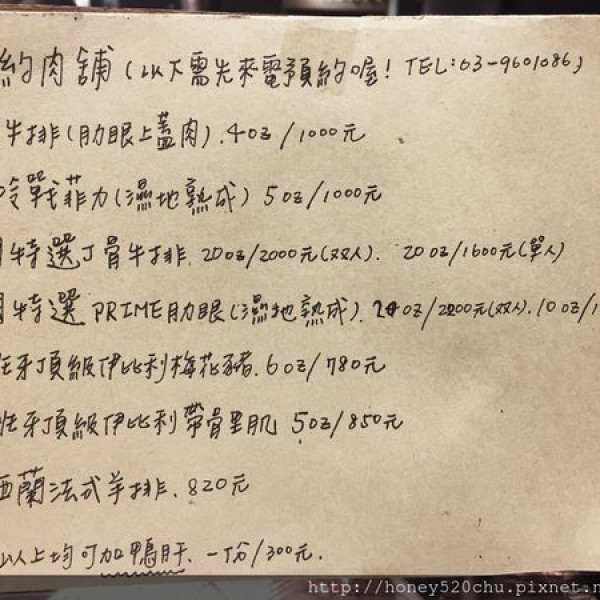 約肉舖(以下需先來電預約喔! TEL:03-9601086)
牛排(肋眼上蓋肉).4oz/1000元
冷戰菲力(濕地熟成) 5oz/1000元
特選丁骨牛排. 20oz/2000元(双人). 20oz/1600元(單人)
特選 PRIME肋眼(濕地熟成). 20oz/2200元(双人).10oz/1
班牙頂級伊比利梅花豬.6oz/780元
班牙頂級伊比利帶骨里肌 5oz/850元
西蘭法式羊排.820元
以上均可加鴨肝.一份/300元.
http://honey520chu.pixnet.n